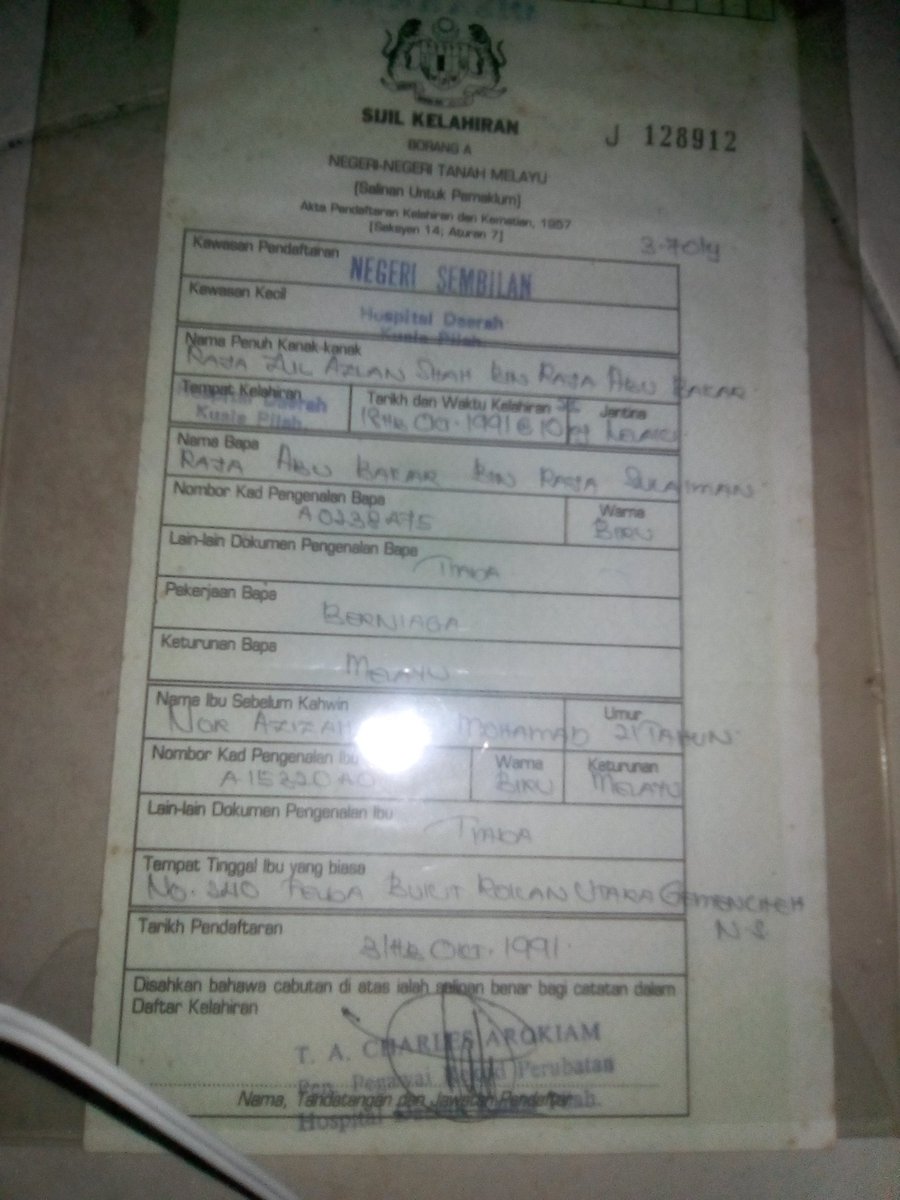 SIJIL KELAHIRAN
J 128912
BORANG A
NEGERI-NEGERI TANAH MELAYU
[Salinan Untuk Pemaklum]
Akta Pendaftaran Kelahiran dan Kematian, 1957
[Seksyen 14; Aturan 7]
Kawasan Pendaftaran
NEGERI SEMBILAN
Kawasan Kecil
Hospital Daerah
Kuala Pilah.
Nama Penuh Kanak-kanak
RAJA AZLAN SHAH BIN RAJA ABU BAKAR
Tempat Kelahiran
Tarikh dan Waktu Kelahiran
Jantina
Hospital Daerah
Kuala Pilah.
18hb Okt. 1991 @
LELAKI
Nama Bapa
RAJA ABU BAKAR BIN RAJA SULAIMAN
Nombor Kad Pengenalan Bapa
Warna
BIRU
Lain-lain Dokumen Pengenalan Bapa
TIADA
Pekerjaan Bapa
BERNIAGA
Keturunan Bapa
MELAYU
Nama Ibu Sebelum Kahwin
Umur
NOR AZIZAH MOHAMAD
21 TAHUN
Nombor Kad Pengenalan Ibu
Warna
Keturunan
BIRU
MELAYU
Lain-lain Dokumen Pengenalan Ibu
TIADA
Tempat Tinggal Ibu yang biasa
No. 240 FELDA BUKIT ROKAN UTARA GEMENCHEH
N.S
Tarikh Pendaftaran
31hb Okt. 1991.
Disahkan bahawa cabutan di atas ialah salinan benar bagi catatan dalam
Daftar Kelahiran
T. A. CHARLES AROKIAM
Pen. Pegawai Rekod Perubatan
Nama, Tandatangan dan Jawatan Pendaftar
Hospital Daerah Kuala Pilah.